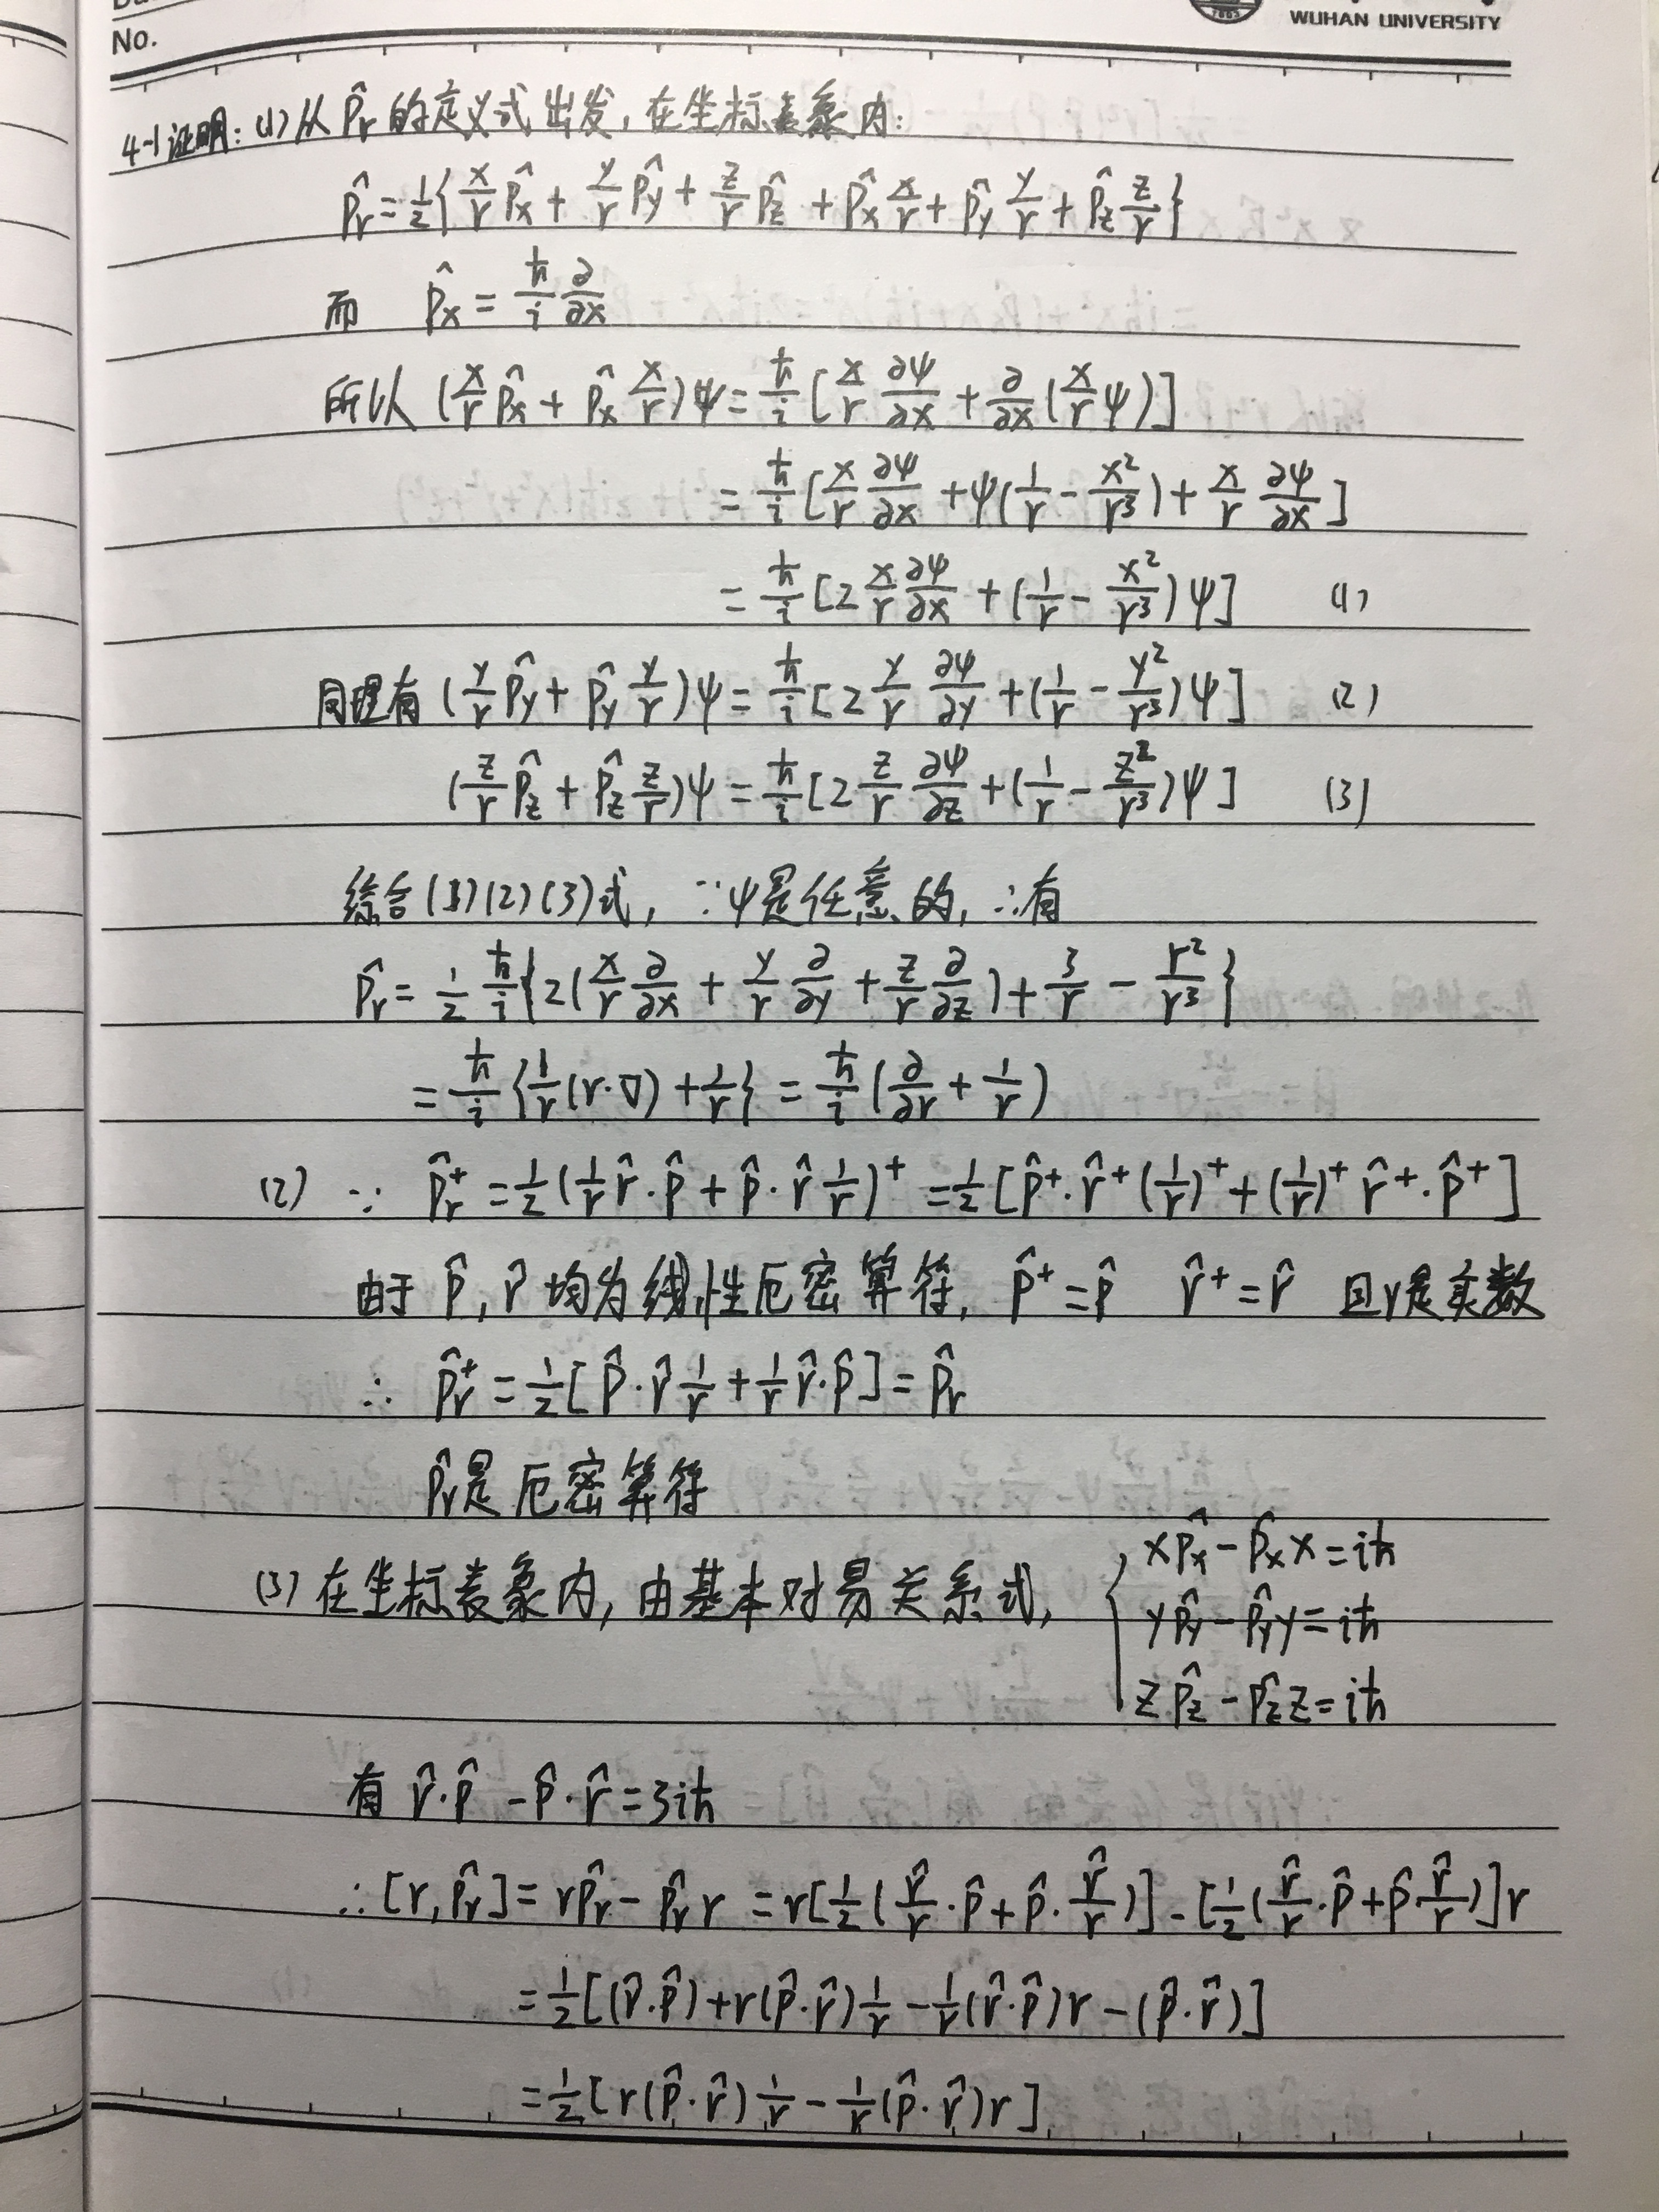 No.
1893
WUHAN UNIVERSITY
4-1 证明: (1) 从 p̂r 的定义式出发, 在坐标表象内:
p̂r = 1/2{x/r p̂x + y/r p̂y + z/r p̂z + p̂x x/r + p̂y y/r + p̂z z/r}
而 p̂x = ħ/i ∂/∂x
所以 (x/r p̂x + p̂x x/r)ψ = ħ/i [x/r ∂ψ/∂x + ∂/∂x (x/r ψ)]
= ħ/i [x/r ∂ψ/∂x + ψ(1/r - x²/r³) + x/r ∂ψ/∂x]
= ħ/i [2 x/r ∂ψ/∂x + (1/r - x²/r³)ψ] (1)
同理有 (y/r p̂y + p̂y y/r)ψ = ħ/i [2 y/r ∂ψ/∂y + (1/r - y²/r³)ψ] (2)
(z/r p̂z + p̂z z/r)ψ = ħ/i [2 z/r ∂ψ/∂z + (1/r - z²/r³)ψ] (3)
综合(1)(2)(3)式, ∵ψ是任意的, ∴有
p̂r = 1/2 ħ/i {2(x/r ∂/∂x + y/r ∂/∂y + z/r ∂/∂z) + 3/r - r²/r³}
= ħ/i {1/r (r·∇) + 1/r} = ħ/i (∂/∂r + 1/r)
(2) ∵ p̂r⁺ = 1/2 (1/r r̂·p̂ + p̂·r̂ 1/r)⁺ = 1/2 [p̂⁺·r̂⁺(1/r)⁺ + (1/r)⁺ r̂⁺·p̂⁺]
由于 p̂, r̂ 均为线性厄密算符, p̂⁺ = p̂ r̂⁺ = r̂ 且r是实数
∴ p̂r⁺ = 1/2 [p̂·r̂ 1/r + 1/r r̂·p̂] = p̂r
p̂r是厄密算符
(3) 在坐标表象内, 由基本对易关系式, { x p̂x - p̂x x = iħ
y p̂y - p̂y y = iħ
z p̂z - p̂z z = iħ
有 r̂·p̂ - p̂·r̂ = 3iħ
∴ [r, p̂r] = r p̂r - p̂r r = r[1/2 (r̂/r·p̂ + p̂·r̂/r)] - [1/2 (r̂/r·p̂ + p̂·r̂/r)]r
= 1/2 [(r̂·p̂) + r(p̂·r̂) 1/r - 1/r (r̂·p̂)r - (p̂·r̂)]
= 1/2 [r(p̂·r̂) 1/r - 1/r (p̂·r̂)r]